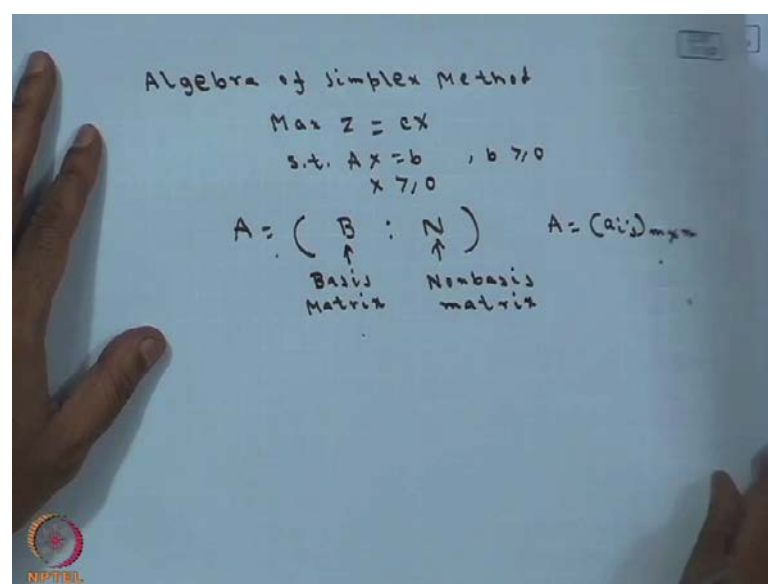 Algebra of Simplex Method
Max Z = cX
s.t. AX = b , b ≥ 0
X ≥ 0
A = ( B : N ) A = (aij)m×n
↑ ↑
Basis Nonbasis
Matrix matrix
NPTEL